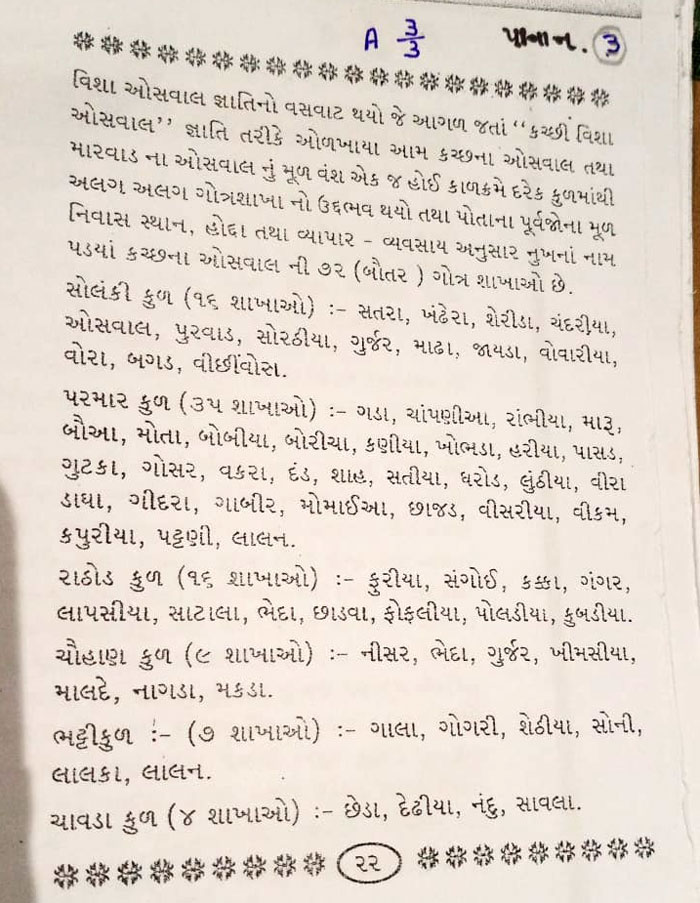 A 3/3 પાના ન. ૩
વિશા ઓસવાલ જ્ઞાતિનો વસવાટ થયો જે આગળ જતાં ‘‘કચ્છી વિશા
ઓસવાલ’’ જ્ઞાતિ તરીકે ઓળખાયા આમ કચ્છના ઓસવાલ તથા
મારવાડ ના ઓસવાલ નું મૂળ વંશ એક જ હોઈ કાળક્રમે દરેક કુળમાંથી
અલગ અલગ ગોત્રશાખા નો ઉદ્દભવ થયો તથા પોતાના પૂર્વજોના મૂળ
નિવાસ સ્થાન, હોદ્દા તથા વ્યાપાર - વ્યવસાય અનુસાર નુખનાં નામ
પડયાં કચ્છના ઓસવાલ ની ૭૨ (બૌતર ) ગોત્ર શાખાઓ છે.
સોલંકી કુળ (૧૬ શાખાઓ) :- સતરા, ખંઢેરા, શેરીડા, ચંદરીયા,
ઓસવાલ, પુરવાડ, સોરઠીયા, ગુર્જર, માઢા, જાયડા, વોવારીયા,
વોરા, બગડ, વીછીંવોરા.
પરમાર કુળ (૩૫ શાખાઓ) :- ગડા, ચાંપણીઆ, રાંભીયા, મારૂ,
બૌઆ, મોતા, બોબીયા, બોરીચા, કણીયા, ખોભડા, હરીયા, પાસડ,
ગુટકા, ગોસર, વકરા, દંડ, શાહ, સતીયા, ધરોડ, લુંઠીયા, વીરા
ડાઘા, ગીદરા, ગાબીર, મોમાઈઆ, છાજડ, વીસરીયા, વીકમ,
કપુરીયા, પટ્ટણી, લાલન.
રાઠોડ કુળ (૧૬ શાખાઓ) :- ફુરીયા, સંગોઈ, કક્કા, ગંગર,
લાપસીયા, સાટાલા, ભેદા, છાડવા, ફોફલીયા, પોલડીયા, કુબડીયા.
ચૌહાણ કુળ (૯ શાખાઓ) :- નીસર, ભેદા, ગુર્જર, ખીમસીયા,
માલદે, નાગડા, મકડા.
ભટ્ટીકુળ :- (૭ શાખાઓ) :- ગાલા, ગોગરી, શેઠીયા, સોની,
લાલકા, લાલન.
ચાવડા કુળ (૪ શાખાઓ) :- છેડા, દેઢીયા, નંદુ, સાવલા.
૨૨